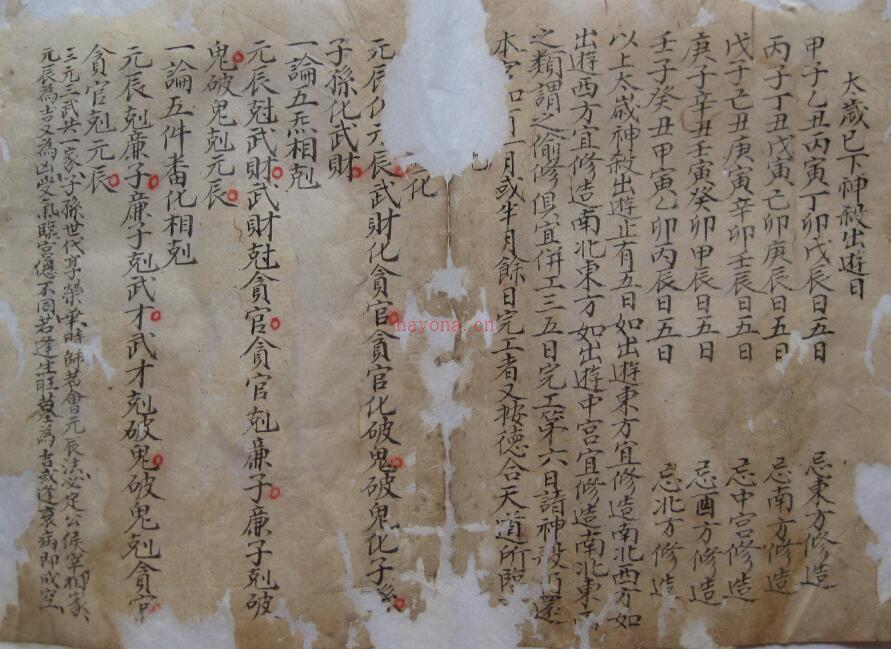 太歲已下神殺出遊日
甲子乙丑丙寅丁卯戊辰日五日 忌東方修造
丙子丁丑戊寅己卯庚辰日五日 忌南方修造
戊子己丑庚寅辛卯壬辰日五日 忌中宮修造
庚子辛丑壬寅癸卯甲辰日五日 忌酉方修造
壬子癸丑甲寅乙卯丙辰日五日 忌北方修造
以上太歲神殺出遊止有五日如出遊東方宜修造南北西方如
出遊西方宜修造南北東方如出遊中宮宜修造南北東
之類謂之偷修俱宜併工三五日完工第六日諸神殺仍還
本宮如一月或半月餘日完工者又按德合天道所臨
化
元辰化元辰武財化貪官貪官化破鬼破鬼化子孫
子孫化武財
一論五炁相剋
元辰尅武財武財尅貪官貪官剋廉子廉子剋破
鬼破鬼剋元辰
一論五件番化相剋
元辰剋廉子廉子剋武才武才剋破鬼破鬼剋貪官
貪官剋元辰
三元三武共一家子孫世代享榮華時師若會元辰法必定公侯宰相家
元辰為吉又為凶受氣臨宮總不同若逢生旺墓為吉或逢衰病即成空